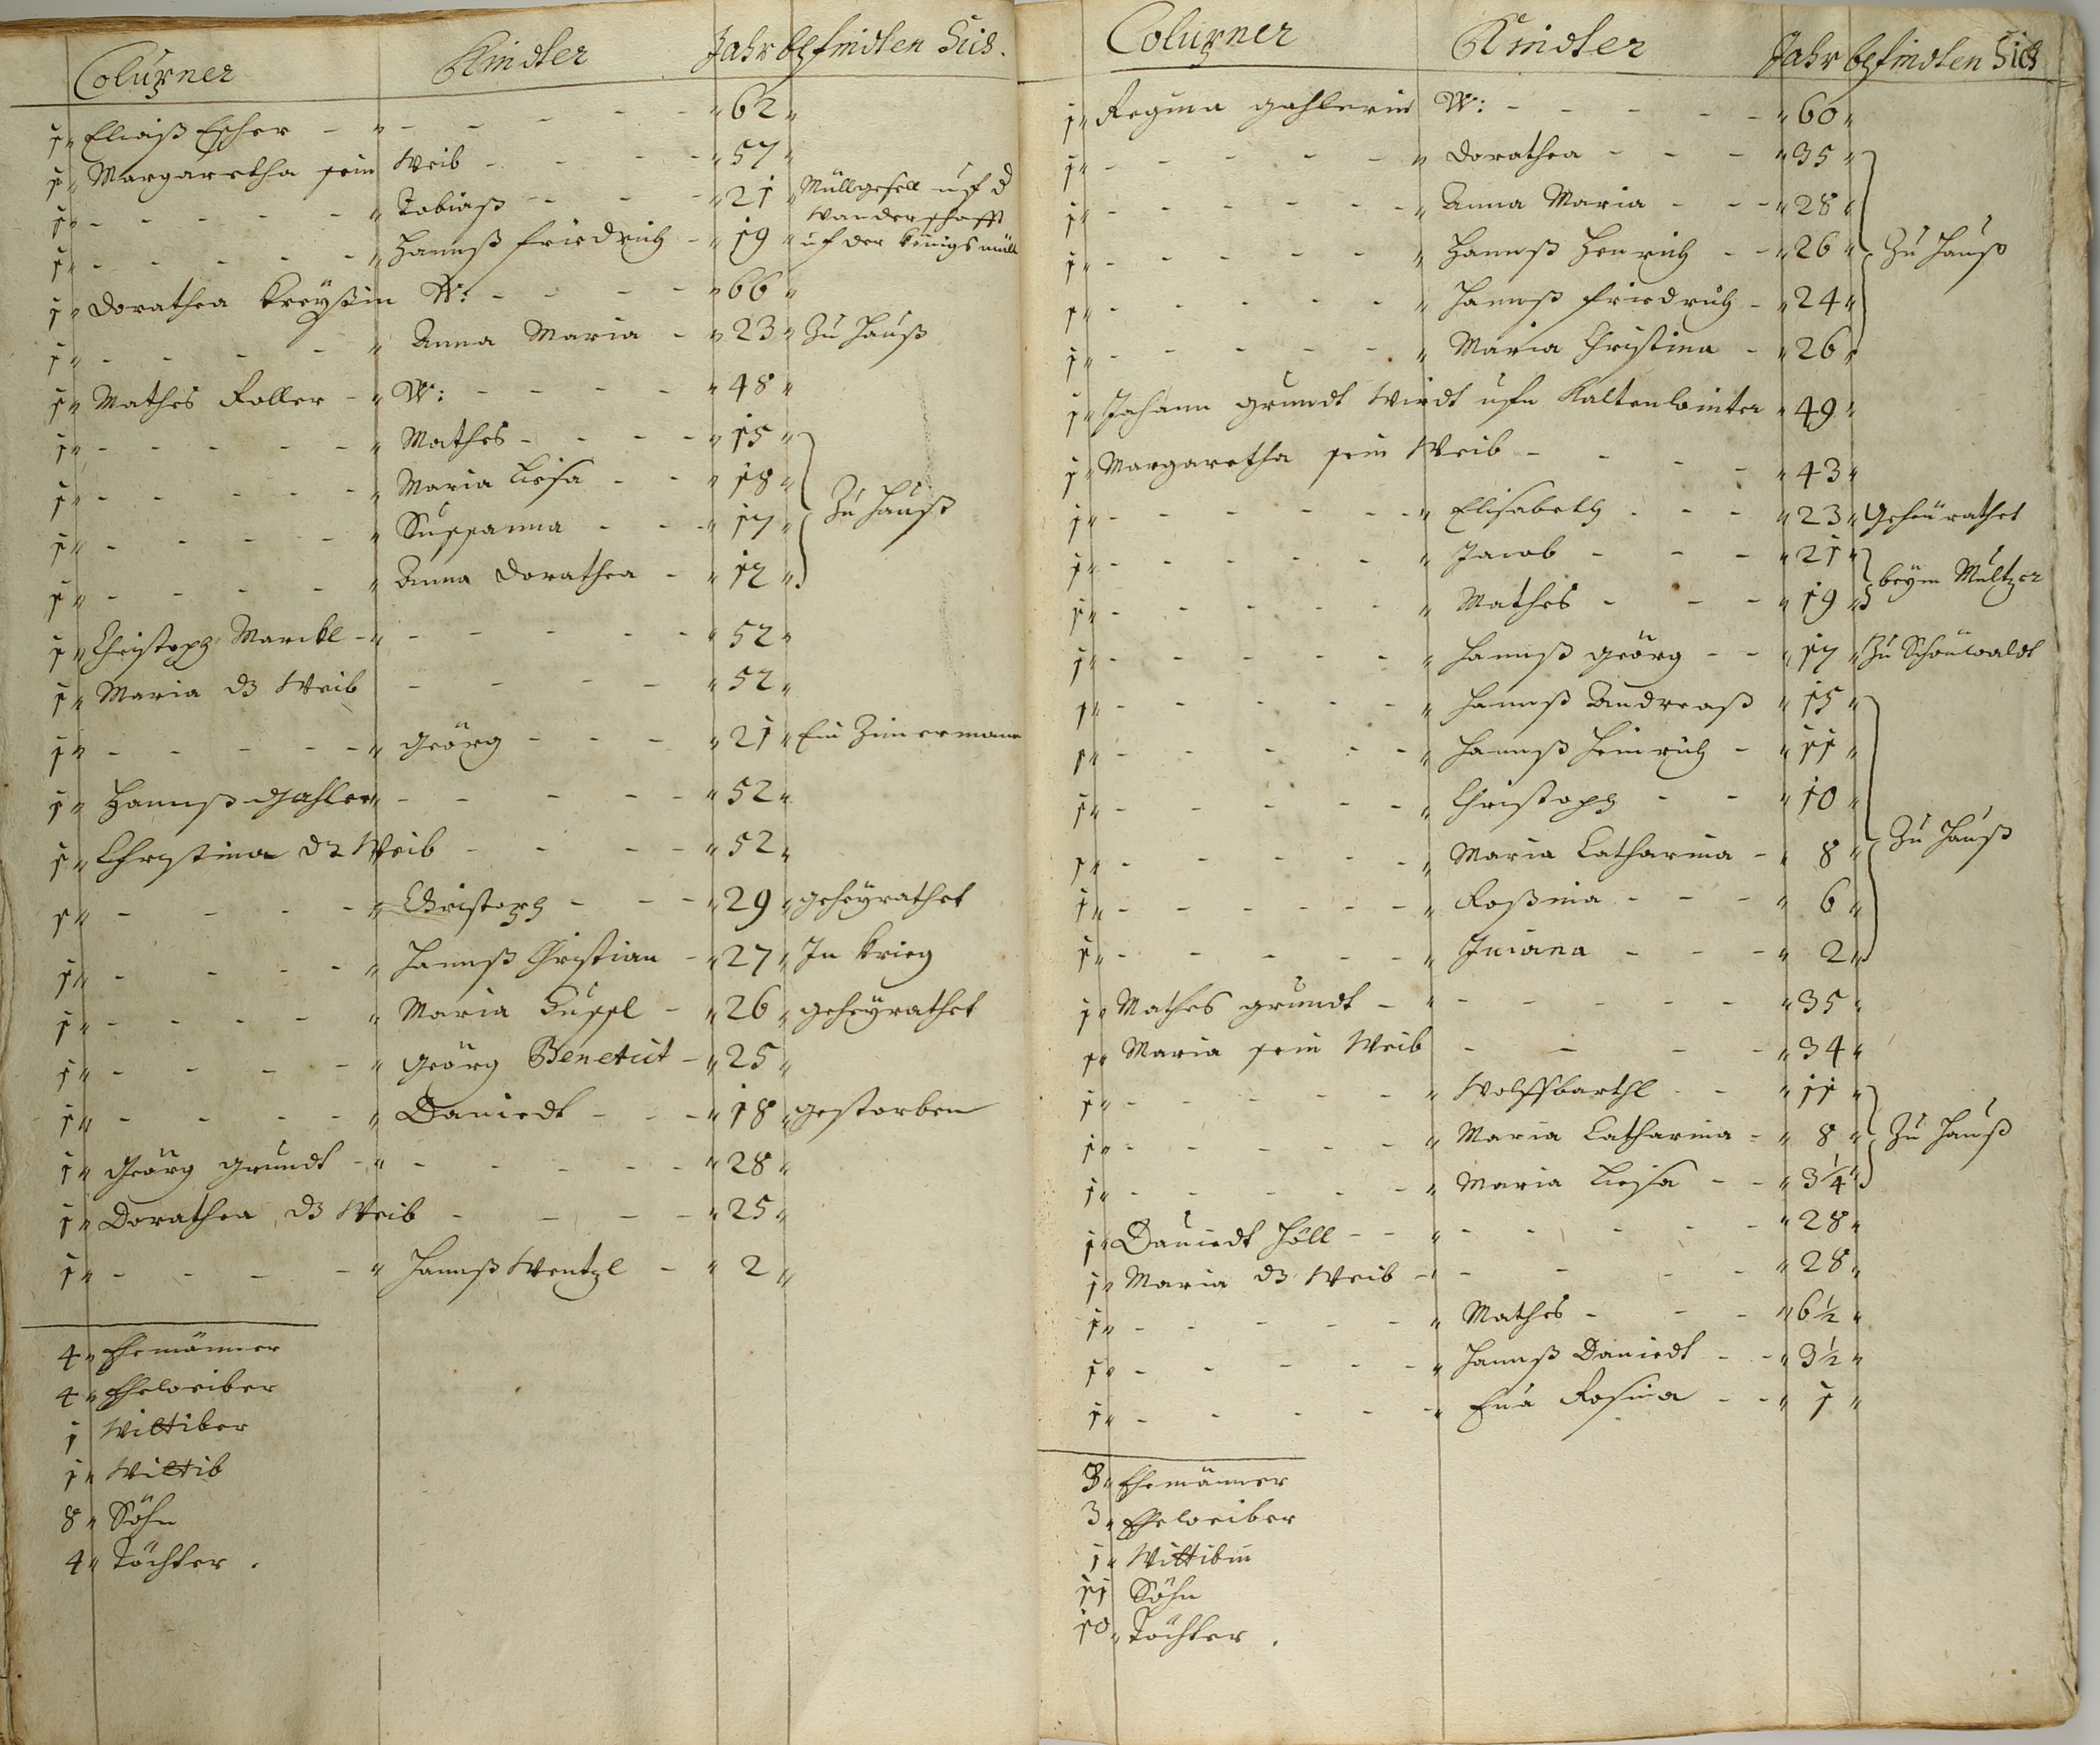 Coluzner Kindter Jahr befindten Sich.
1 Eliaß Escher - - - - - 62
1 Margaretha sein Weib - - - 57
1 - - - - - Tobiaß - - - 21 Müllgesell uf d Wanderschafft
1 - - - - - Hannß Friedrich - 19 uf der Königsmüll
1 Dorathea Kreyßin W: - - - - 66
1 - - - - Anna Maria - 23 Zu Hauß
1 Mathes Roller - W: - - - - 48
1 - - - - - Mathes - - - - 15
1 - - - - - Maria Liesa - - 18
1 - - - - - Sussanna - - - 17 Zu Hauß
1 - - - - Anna Dorathea - 12
1 Christoph Markl - - - - - - 52
1 Maria d3 Weib - - - - 52
1 - - - - - Geörg - - - 21 Ein Zimermann
1 Hannß Gahler - - - - - 52
1 Christina d3 Weib - - - - 52
1 - - - - Christoph - - - 29 geheyrathet
1 - - - - Hannß Christian - 27 In Krieg
1 - - - - Maria - 26 geheyrathet
1 - - - - Geörg Benetict - 25
1 - - - - Daniedt - - - 18 gestorben
1 Geörg Grundt - - - - - - 28
1 Dorathea d3 Weib - - - - 25
1 - - - - Hannß Wentzl - 2
4 Ehemänner
4 Eheweiber
1 Wittiber
1 Wittib
8 Söhn
4 Töchter.
Coluzner Kindter Jahr befindten Sich
1 Regina Gahlerin W: - - - - - 60
1 - - - - - Dorathea - - - 35
1 - - - - - - Anna Maria - - - 28
1 - - - - - Hannß Henrich - - 26 Zu Hauß
1 - - - - - Hannß Friedrich - 24
1 - - - - - Maria Christina - 26
1 Johann Grundt Wirdt ufn Kaltenwinter 49
1 Margaretha sein Weib - - - - 43
1 - - - - - - Elisabeth - - - 23 Geheurathet
1 - - - - - Jacob - - - 21 beym Multzer
1 - - - - - Mathes - - - 19
1 - - - - - Hannß Geörg - - 17 Zu Schönwaldt
1 - - - - - Hannß Andreaß 15
1 - - - - - Hannß Heinrich - 11
1 - - - - - Christoph - - 10
1 - - - - - Maria Catharina - 8 Zu Hauß
1 - - - - - - Roßina - - - 6
1 - - - - - Juiana - - - 2
1 Mathes Grundt - - - - - - 35
1 Maria sein Weib - - - - 34
1 - - - - - Wolffbarthl - - 11
1 - - - - - Maria Catharina - 8 Zu Hauß
1 - - - - - Maria Liesa - - 3 1/4
1 Daniedt Höll - - - - - - - 28
1 Maria d3 Weib - - - - - 28
1 - - - - - Mathes - - - 6 1/2
1 - - - - - Hannß Daniedt - - 3 1/2
1 - - - - - Eua Rosina - - 1
3 Ehemänner
3 Eheweiber
1 Wittibin
11 Söhn
10 Töchter.